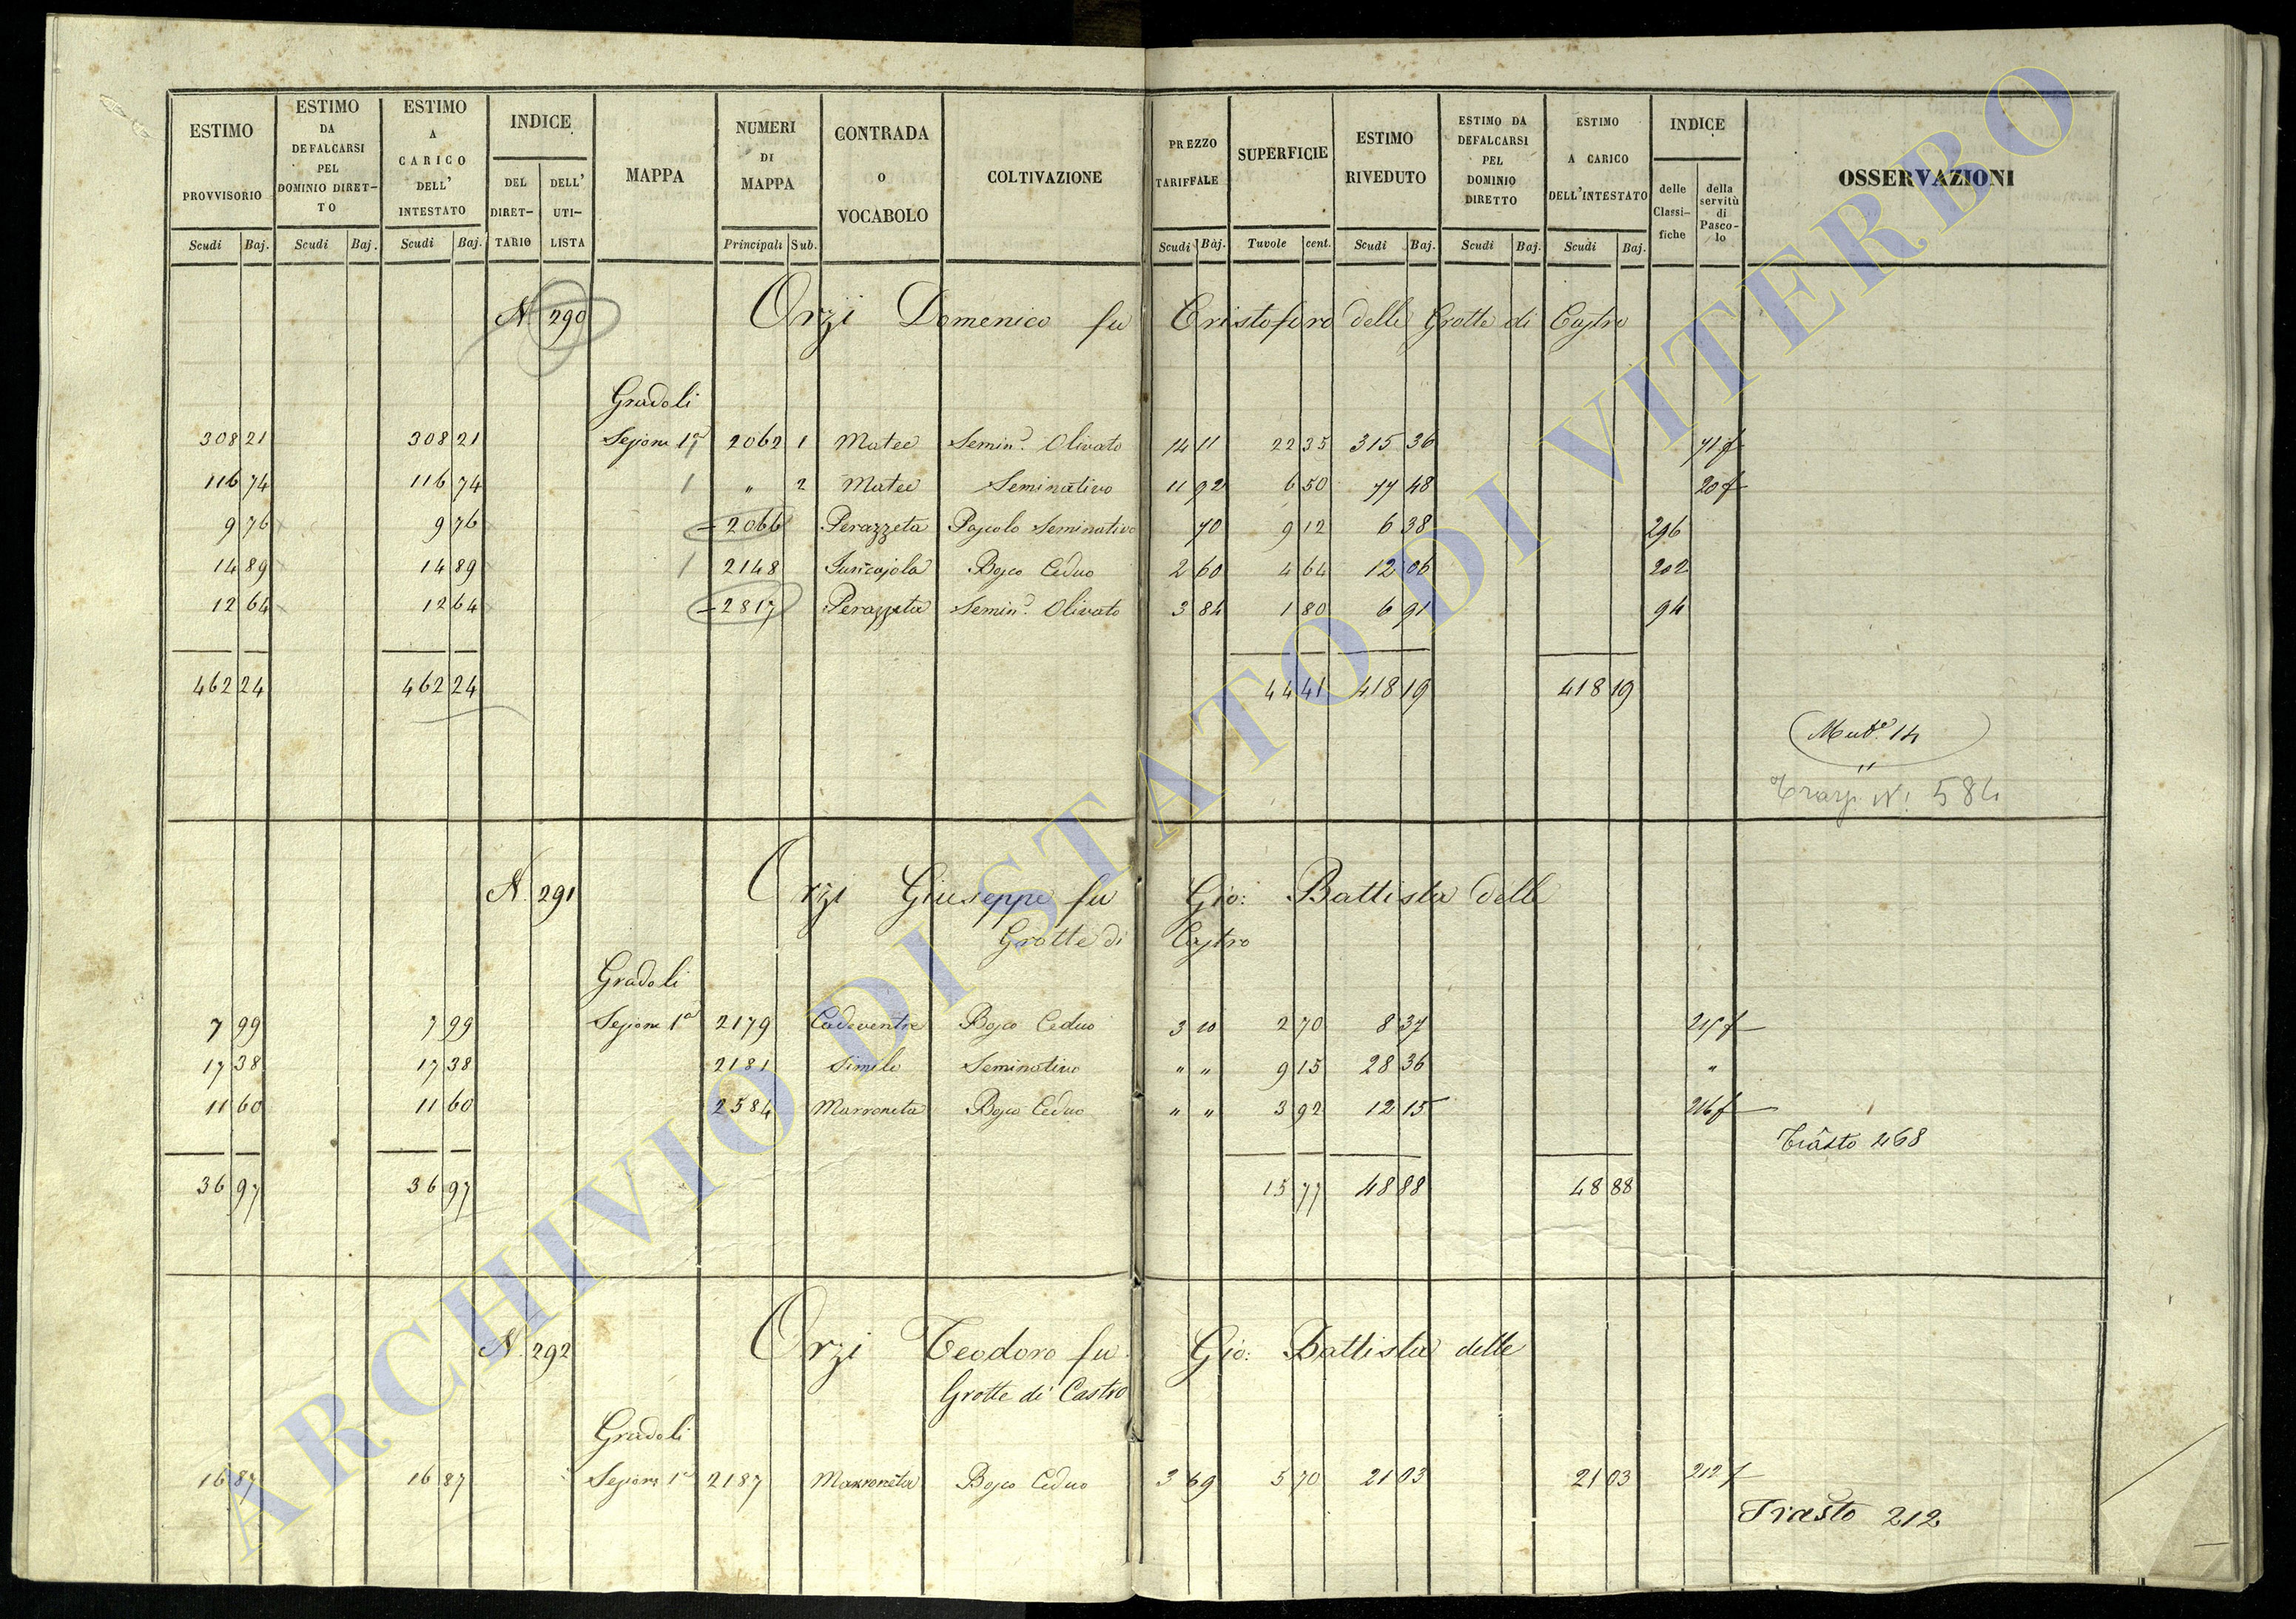 ESTIMO PROVVISORIO Scudi Baj.
ESTIMO DA DEFALCARSI PEL DOMINIO DIRET- TO Scudi Baj.
ESTIMO A CARICO DELL' INTESTATO Scudi Baj.
INDICE DEL DIRET- TARIO DELL' UTI- LISTA
MAPPA
NUMERI DI MAPPA Principali Sub.
CONTRADA O VOCABOLO
COLTIVAZIONE
PREZZO TARIFFALE Scudi Baj.
SUPERFICIE Tavole cent.
ESTIMO RIVEDUTO Scudi Baj.
ESTIMO DA DEFALCARSI PEL DOMINIO DIRETTO Scudi Baj.
ESTIMO A CARICO DELL'INTESTATO Scudi Baj.
INDICE delle Classi- fiche della servitù di Pasco- lo
OSSERVAZIONI
N. 290 Orzi Domenico fu Cristoforo delle Grotte di Castro
Gradoli
308 21 308 21 Sezione 1ª 2062 1 Matee Semin.º Olivato 14 11 22 35 315 36 71 f
116 74 116 74 1 " 2 Matee Seminativo 11 92 6 50 77 48 20 f
9 76 9 76 2066 Perazzeta Pascolo Seminativo 70 9 12 6 38 296
14 89 14 89 1 2148 Bosco Ceduo 2 60 4 64 12 06 202
12 64 12 64 2817 Perazzeta Semin.º Olivato 3 84 1 80 6 91 94
462 24 462 24 44 41 418 19 418 19
Mut.ª 14
"
Trasp. N. 584
N. 291 Orzi Giuseppe fu Gio: Battista delle
Grotte di Castro
Gradoli
7 99 7 99 Sezione 1ª 2179 Cadeventre Bosco Ceduo 3 10 2 70 8 37 215 f
17 38 17 38 2181 Simile Seminativo " " 9 15 28 36 "
11 60 11 60 2584 Marroneta Bosco Ceduo " " 3 92 12 15 216 f
Triasto 268
36 97 36 97 15 77 48 88 48 88
N. 292 Orzi Teodoro fu Gio: Battista delle
Grotte di Castro
Gradoli
16 87 16 87 Sezione 1ª 2187 Marroneta Bosco Ceduo 3 69 5 70 21 03 21 03 212 f
Triasto 212
ARCHIVIO DI STATO DI VITERBO